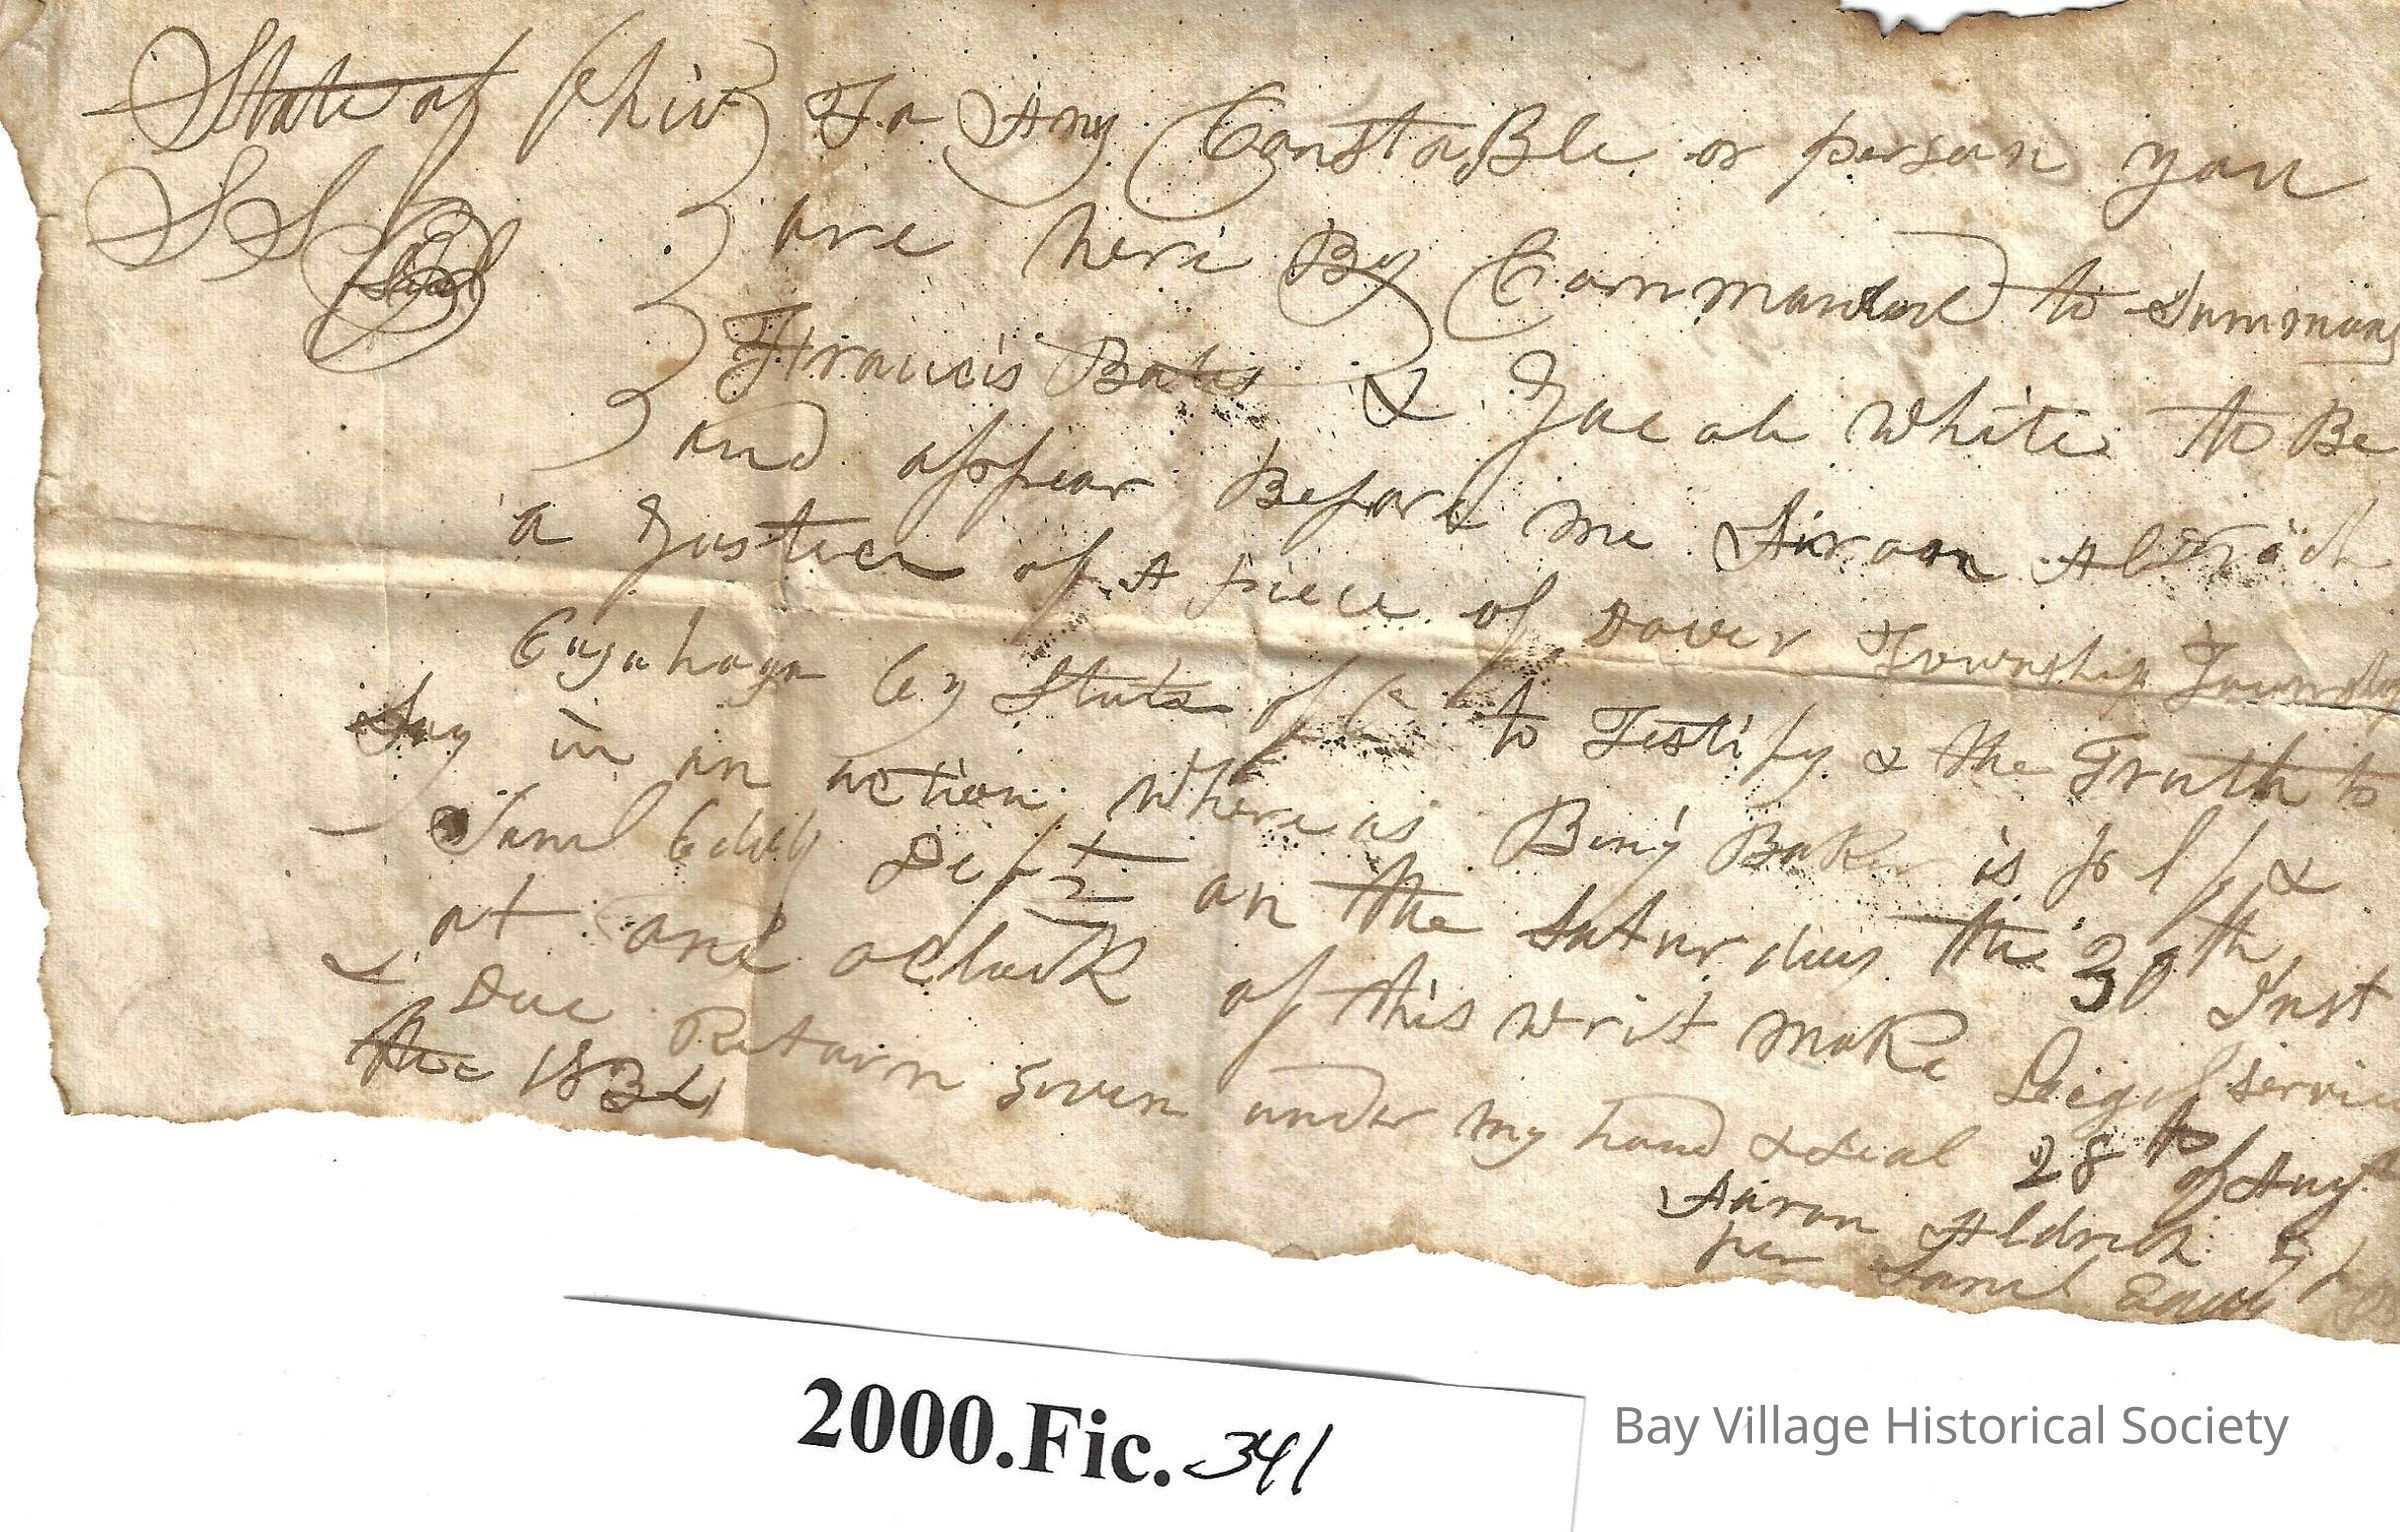 State of Ohio To Any Constable or person you
SS Seal are here By Commanded to Summons
Francis Bates & Jacob White to Be
and appear Before me Airaon Aldrich
a Justice of A piece of Dover Township
Cuyahoga Cy State of O to Testify & the Truth to
Say in an action Where as Benj Baker is Plf &
Saml Eddy Deft on the Saturday the 30th Inst
at one oclock of this Writ Make Leigel Servic
& Due Return Given under my hand & Seal 28th of Augt
the 1834
Aaron Aldrich
per Saml Eddy
2000.Fic.341
Bay Village Historical Society